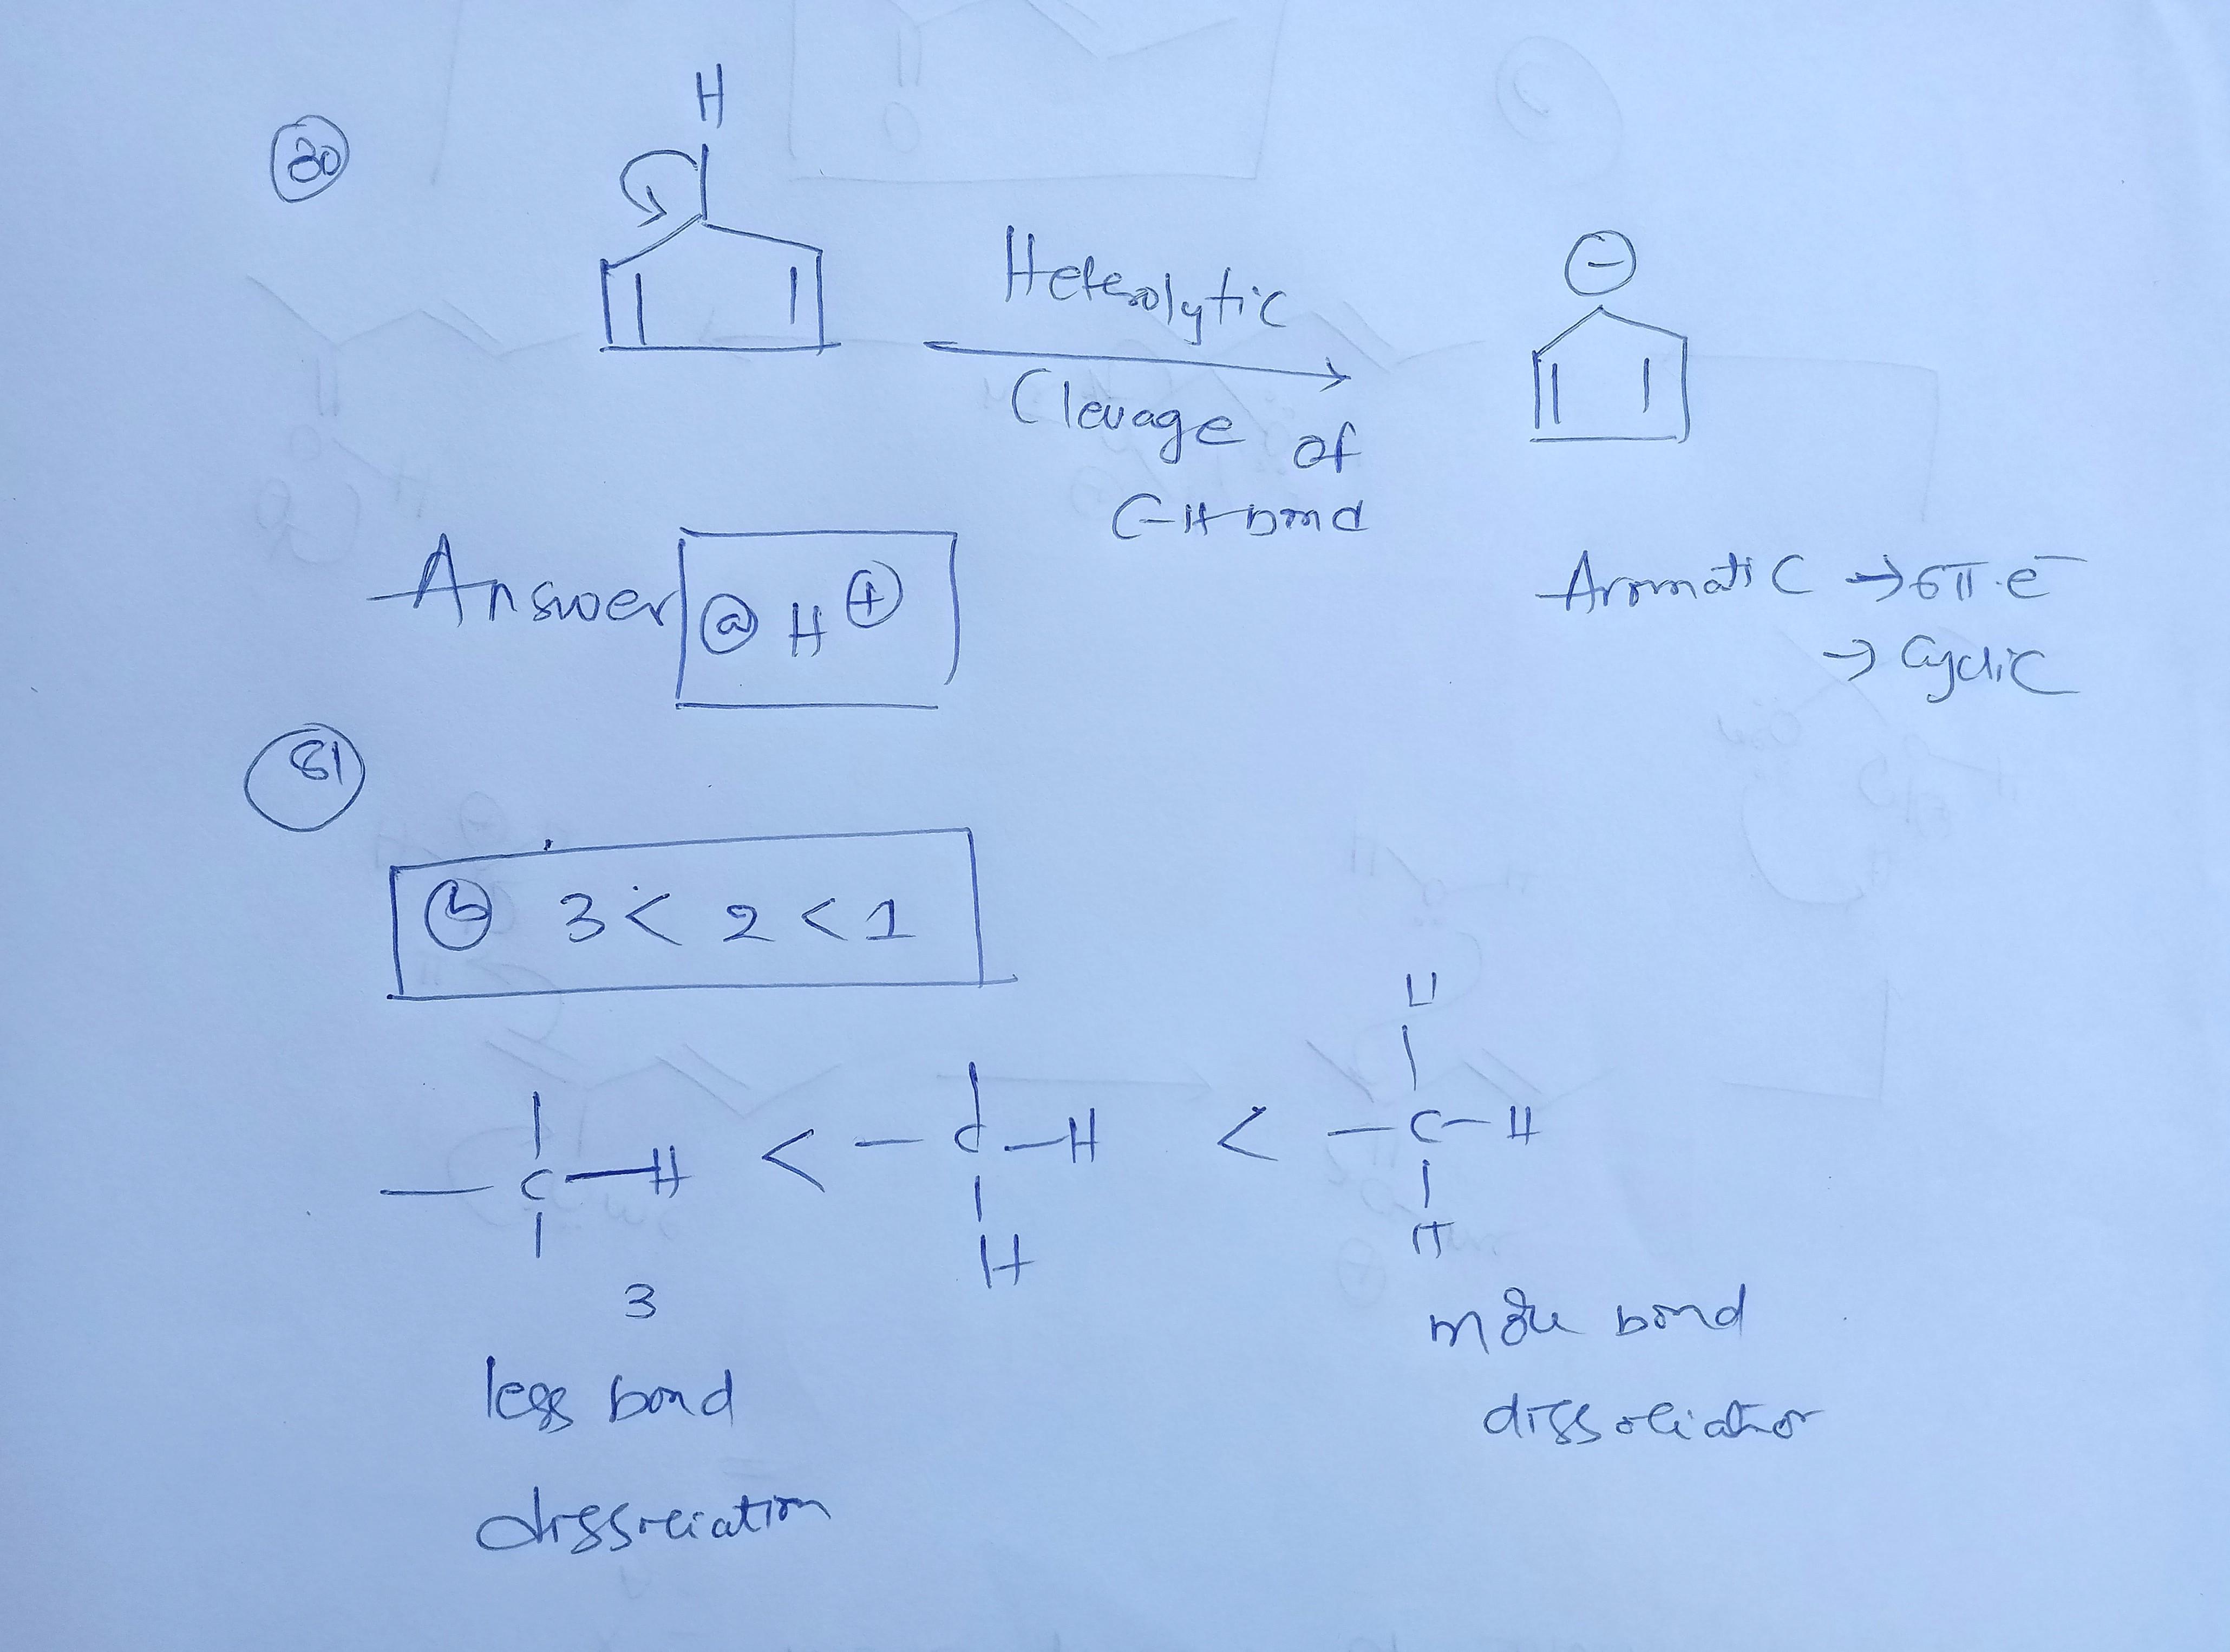 30
H
Heterolytic
Clevage of
C-H bond
⊖
Answer ⓐ H⊕
Aromatic → 6π e⁻
→ Cyclic
31
ⓑ 3 < 2 < 1
H
C-H < - C-H < - C-H
H
H
3
less bond
dissociation
more bond
dissociation